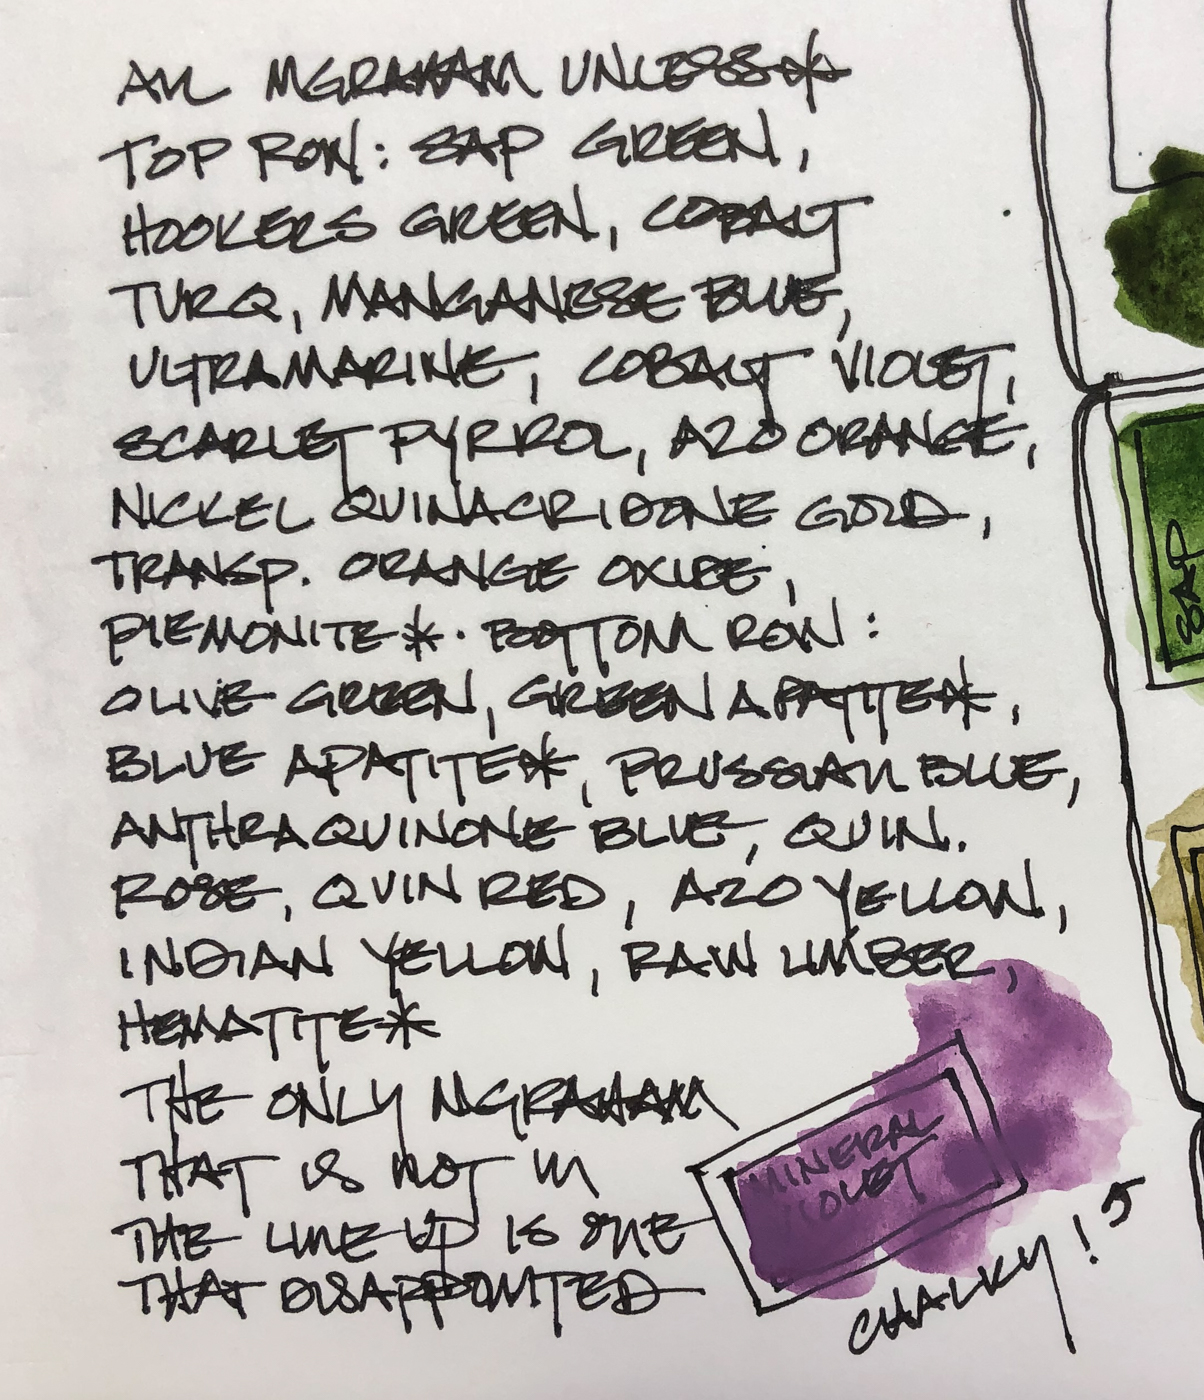 ALL MGRAHAM UNLESS *
TOP ROW: SAP GREEN,
HOOKERS GREEN, COBALT
TURQ, MANGANESE BLUE,
ULTRAMARINE, COBALT VIOLET,
SCARLET PYRROL, AZO ORANGE,
NICKEL QUINACRIDONE GOLD,
TRANSP. ORANGE OXIDE,
PIEMONITE*. BOTTOM ROW:
OLIVE GREEN, GREEN APATITE*,
BLUE APATITE*, PRUSSIAN BLUE,
ANTHRAQUINONE BLUE, QUIN.
ROSE, QUIN RED, AZO YELLOW,
INDIAN YELLOW, RAW UMBER,
HEMATITE*
THE ONLY MGRAHAM
THAT IS NOT IN
THE LINE UP IS ONE
THAT DISAPPOINTED
MINERAL
VIOLET
CHALKY!
SAP